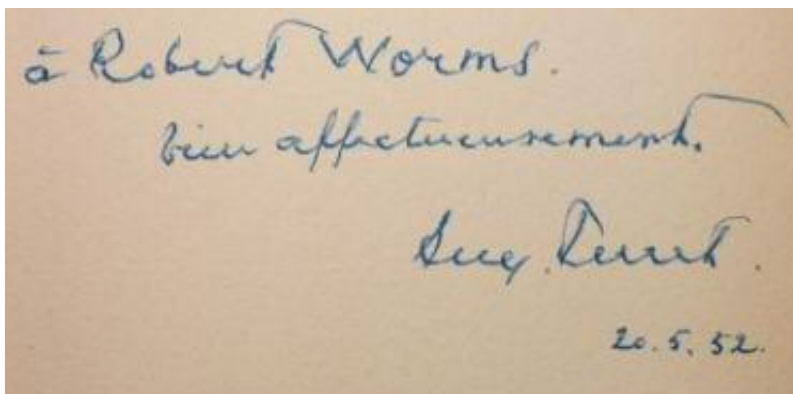 à Robert Worms.
bien affectueusement.
20.5.52.